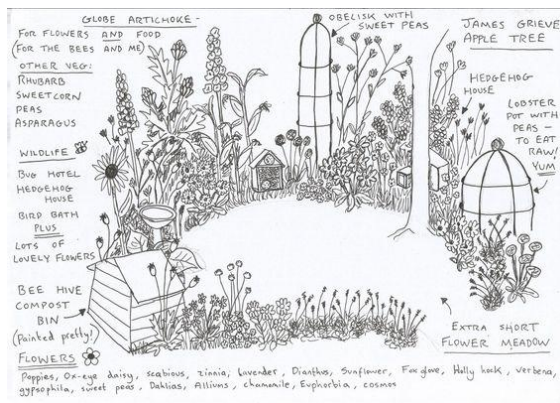 GLOBE ARTICHOKE -
FOR FLOWERS AND FOOD
(FOR THE BEES AND ME)
OTHER VEG:
RHUBARB
SWEETCORN
PEAS
ASPARAGUS
WILDLIFE
BUG HOTEL
HEDGEHOG
HOUSE
BIRD BATH
PLUS
LOTS OF
LOVELY FLOWERS
BEE HIVE
COMPOST
BIN
(Painted pretty!)
OBELISK WITH
SWEET PEAS
JAMES GRIEVE
APPLE TREE
HEDGEHOG
HOUSE
LOBSTER
POT WITH
PEAS -
TO EAT
RAW!
YUM
EXTRA SHORT
FLOWER MEADOW
FLOWERS
Poppies, Ox-eye daisy, scabious, zinnia, Lavender, Dianthus, Sunflower, Foxglove, Holly hock, verbena,
gypsophila, sweet peas, Dahlias, Alliums, chamomile, Euphorbia, cosmos